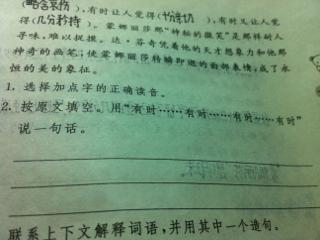 (略含哀伤),有时让人觉得(十分亲切),有时又让人觉
得(几分矜持)。蒙娜丽莎那“神秘的微笑”是那样耐人
寻味,难以捉摸。达·芬奇凭着他的天才想象力和他那
神奇的画笔,使蒙娜丽莎转瞬即逝的面部表情,成了永
恒的美的象征。
1. 选择加点字的正确读音。
2. 按原文填空。用“有时……有时……有时……有时”
说一句话。
联系上下文解释词语,并用其中一个造句。